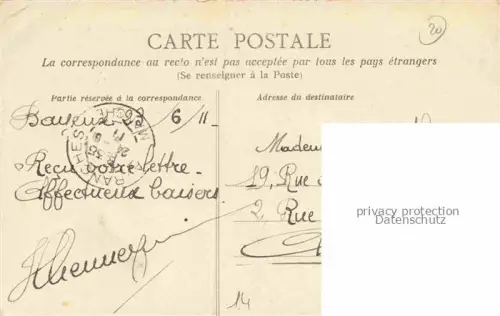 20
CARTE POSTALE
La correspondance au recto n'est pas acceptée par tous les pays étrangers
(Se renseigner à la Poste)
Partie réservée à la correspondance
Adresse du destinataire
Bayeux 23/6/11
Reçu votre lettre.
Affectueux baisers
Madem
19, Rue
2, Rue
privacy protection
Datenschutz
14